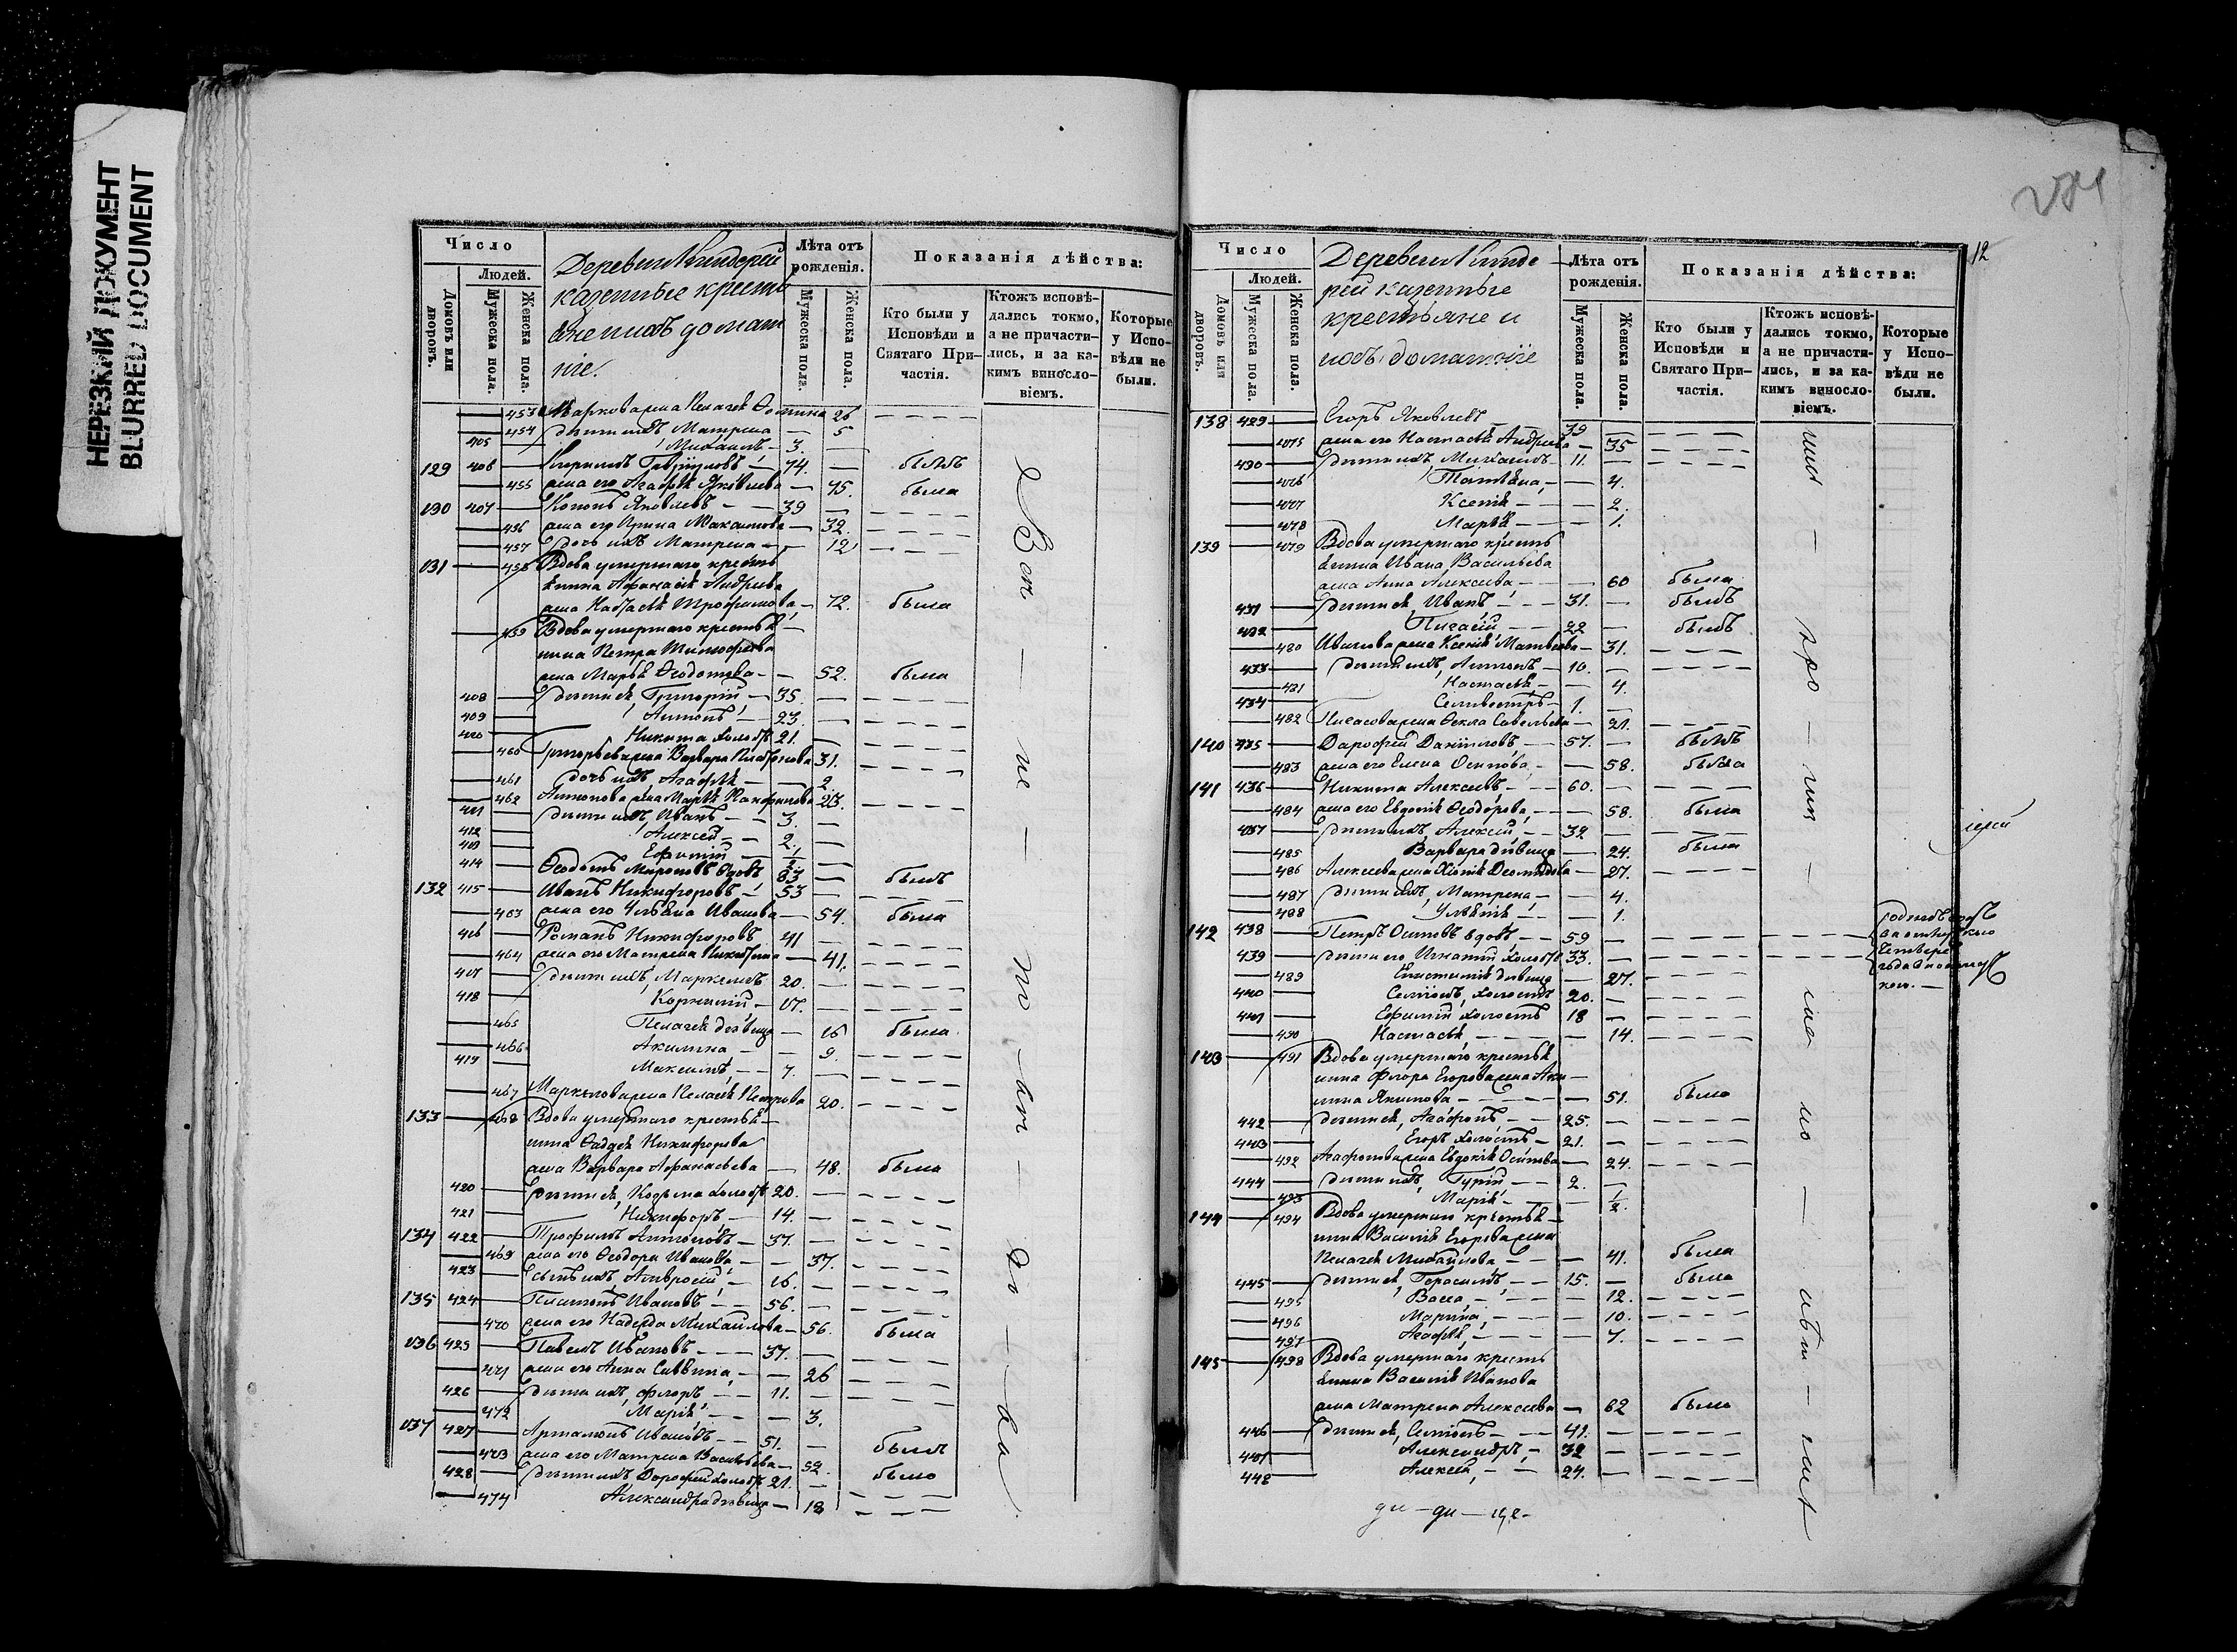 НЕРЕЗКИЙ ДОКУМЕНТ
BLURRED DOCUMENT
Число
Людей.
Домовъ или дворовъ.
Мужеска пола.
Женска пола.
Деревни
казенные крестья
домаш
ніе.
Лѣта отъ рожденія.
Мужеска пола.
Женска пола.
Показанія дѣйства:
Кто были у Исповѣди и Святаго При-частія.
Ктожъ исповѣ-дались токмо, а не причасти-лись, и за ка-кимъ винослo-віемъ.
Которые у Испо-вѣди не были.
453 Маркова жена Пелагея 26
454 Матрена — 5
405 Михаилъ — 3.
129 406 Кирилъ Гавриловъ — 74. — былъ
455 жена его Агафья Яковлева — 75. была
130 407 Кононъ Яковлевъ — 39
456 жена его Ирина Максимова — 32.
457 дочь ихъ Матрена — 12
131 458 Вдова умершаго кресть
янина Афанасія Андреева
жена Настасья Трофимова — 72. была
459 Вдова умершаго крестья
нина Петра Тимофеева
жена Марья Федотова — 52. была
408 дети ея, Григорій — 35.
409 Антонъ — 23.
410 Никита холостъ 21.
460 Григорьева жена Варвара 31.
461 дочь ихъ Агафья — 2
462 Антонова жена Марья 23.
411 дети ихъ, Иванъ — 3.
412 Алексей — 2.
413 Ефимій — 1/2
414 Федотъ Мироновъ вдовъ 83 — былъ
132 415 Иванъ Никифоровъ — 53
463 жена его Ульяна Иванова — 54. была
416 Романъ Никифоровъ 41
464 жена его Матрена Никитина — 41.
417 дети ихъ, Маркелъ 20.
418 Корнилій — 17.
465 Пелагея девица — 16 была
466 Акилина — 9.
419 Максимъ, — 7.
467 Маркелова жена Пелагея Петрова 20.
133 468 Вдова умершаго крестья
нина Фаддея Никифорова
жена Варвара Афанасьева — 48. была
420 дети ея, Козьма холостъ 20.
421 Никифоръ — 14.
134 422 Трофимъ Антоновъ — 37.
469 жена его Феодора Иванова — 37.
423 сынъ ихъ, Амвросій — 16.
135 424 Платонъ Ивановъ — 56.
470 жена его Надежда Михайлова — 56. была
136 425 Павелъ Ивановъ — 37.
471 жена его Анна Саввина — 26
426 дети ихъ, Флоръ — 11.
472 Марія — 3.
137 427 Артамонъ Ивановъ — 51. — былъ
473 жена его Матрена Васильева — 52. была
428 дети ихъ Дорофей холостъ 21.
474 Александра девица — 18
12
Число
Людей.
Домовъ или дворовъ.
Мужеска пола.
Женска пола.
Деревни
рей казенные
крестьяне и
ихъ домашніе
Лѣта отъ рожденія.
Мужеска пола.
Женска пола.
Показанія дѣйства:
Кто были у Исповѣди и Святаго При-частія.
Ктожъ исповѣ-дались токмо, а не причасти-лись, и за ка-кимъ винослo-віемъ.
Которые у Испо-вѣди не были.
138 429 Егоръ Яковлевъ 39
475 жена его Настасья Андреева — 35
430 дети ихъ Михаилъ — 11.
476 Татьяна, — 4.
477 Ксенія — 2.
478 Марья — 1.
139 479 Вдова умершаго кресть
янина Ивана Васильева
жена Анна Алексеева, — 60 была
431 дети ея, Иванъ — 31. былъ
432 22 былъ
480 Иванова жена Ксенія Матвеева — 31.
433 дети ихъ, Антонъ — 10.
481 Настасья, — 4.
434 Селивестръ — 1.
482 жена Фекла Савельева — 21.
140 435 Дорофей Даниловъ — 57. былъ
483 жена его Елена Осипова, — 58. была
141 436 Никита Алексеевъ — 60.
484 жена его Евдокія Феодорова, — 58. была
437 дети ихъ, Алексей, — 32
485 Варвара девица — 24. была
486 Алексеева жена — 27.
487 дети ихъ, Матрена, — 4.
488 — 1.
142 438 Петръ Осиповъ вдовъ, — 59
439 дети его Игнатій холостъ 33.
489 девица — 27.
440 Семіонъ, холостъ 20.
441 Ефимій холостъ 18
490 Настасья, — 14.
143 491 Вдова умершаго крестья
нина Флора Егорова жена Аку
лина Якимова — 51. была
442 дети ея, Агафонъ, — 25.
443 Егоръ холостъ — 21.
492 Агафонова жена Евдокія Осипова — 24.
444 дети ихъ, Гурій — 2.
493 Марія — 1/2.
144 494 Вдова умершаго крестья
нина Василія Егорова жена
Пелагея Михайлова — 41. была
445 дети ея, Герасимъ, — 15. была
495 Васса, — 12.
496 Марина, — 10.
497 Агафья, — 7.
145 498 Вдова умершаго кресть
янина Василія Иванова
жена Матрена Алексеева — 62 была
446 дети ея, Семіонъ — 41.
447 Александръ, — 32
448 Алексей, — 24.